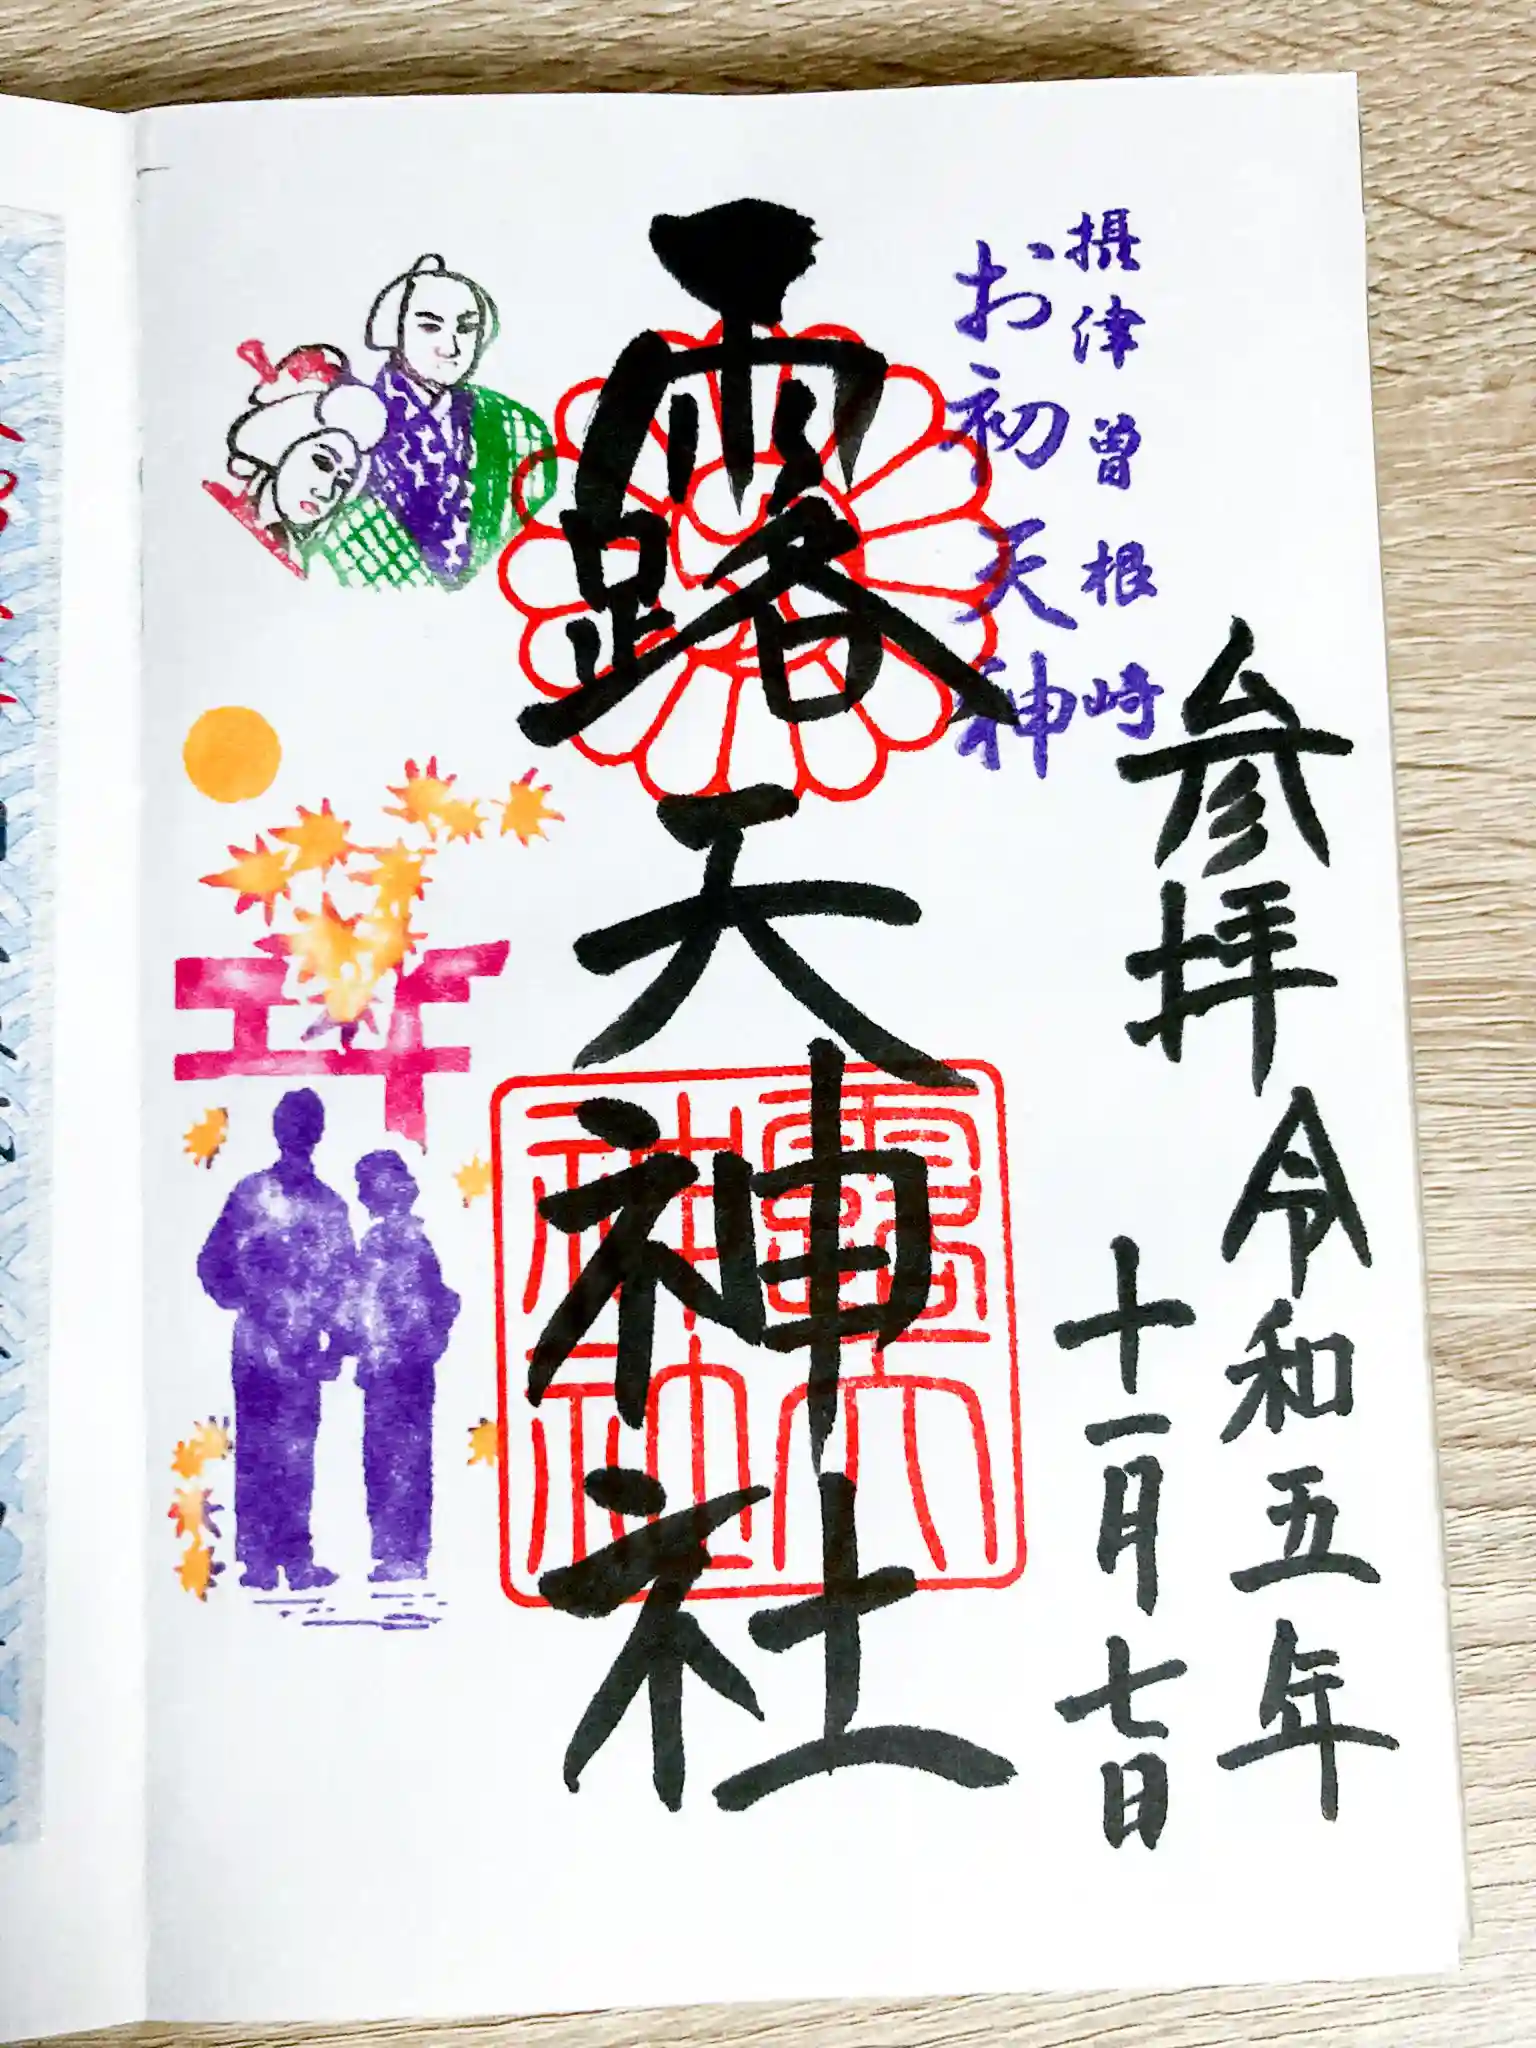 参拝 令和五年
十一月七日
摂津 曽根崎
お初天神
露天神社
露天
神社